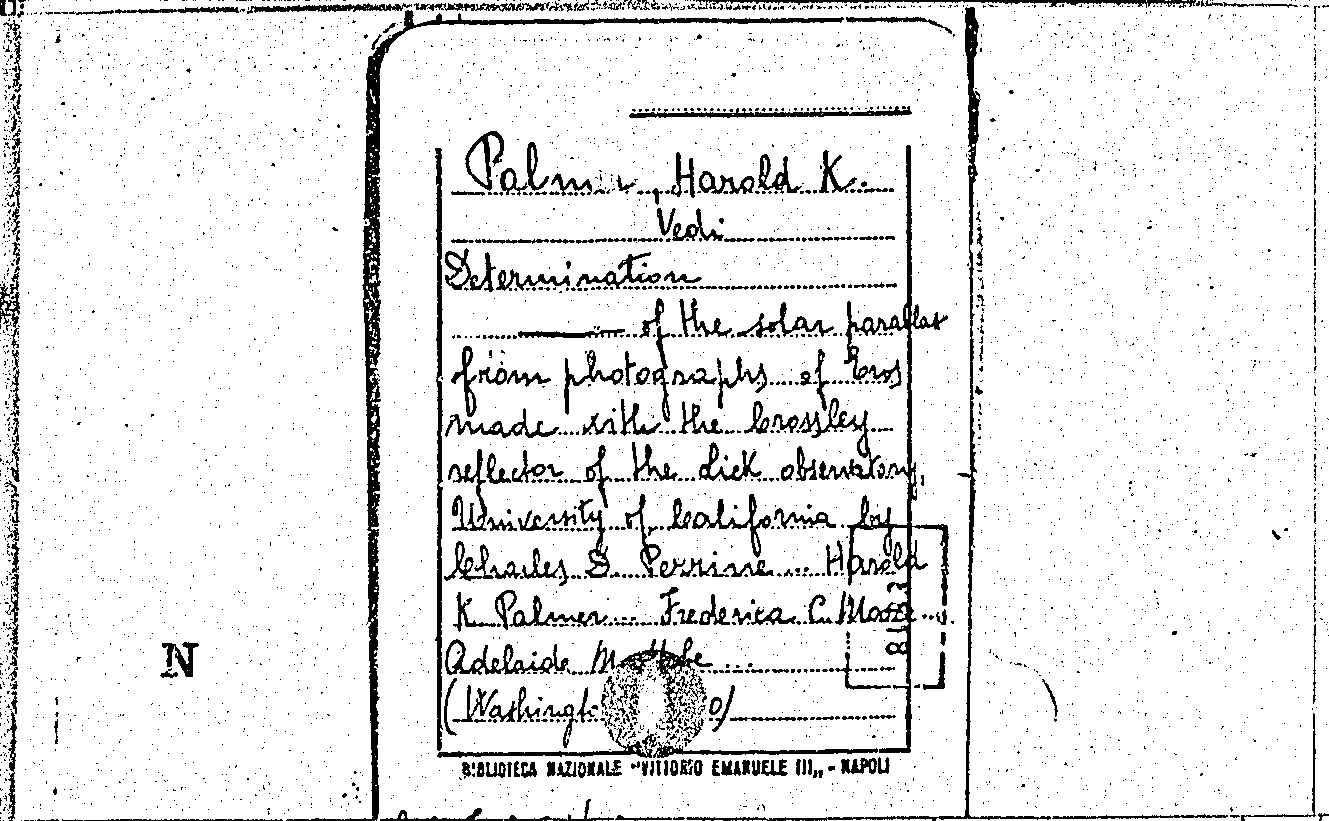 Palmer, Harold K.
Vedi
Determination
of the solar parallax
from photographs of Eros
made with the Crossley
reflector of the Lick observatory,
University of California by
Charles D. Perrine ... Harold
K. Palmer ... Frederica C. Moore ...
Adelaide M. Hobe ...
(Washington
N
BIBLIOTECA NAZIONALE "VITTORIO EMANUELE III„ - NAPOLI